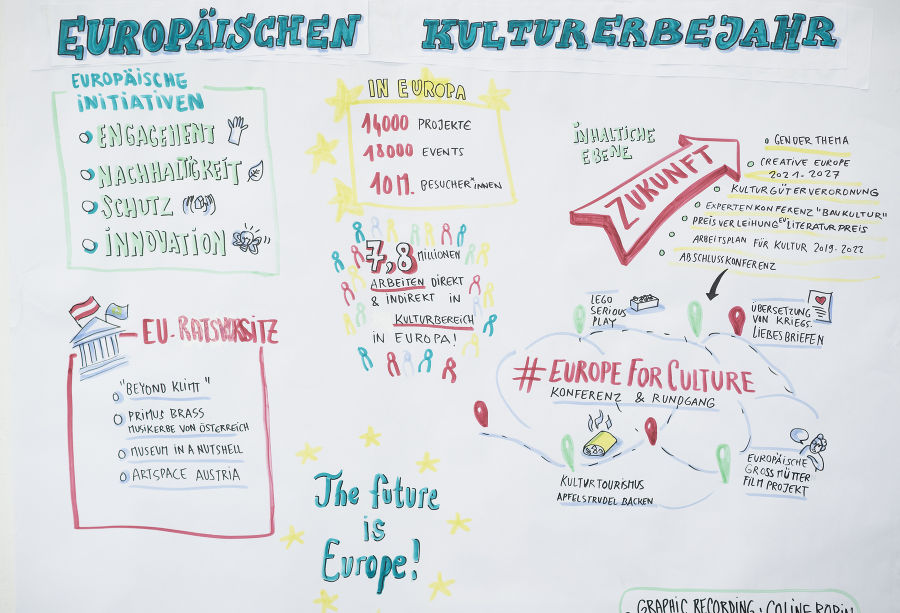 EUROPÄISCHEN KULTURERBEJAHR
EUROPÄISCHE
INITIATIVEN
ENGAGEMENT
NACHHALTIGKEIT
SCHUTZ
INNOVATION
IN EUROPA
14000 PROJEKTE
18000 EVENTS
10 M. BESUCHER*INNEN
7,8 MILLIONEN
ARBEITEN DIREKT
& INDIREKT IN
KULTURBEREICH
IN EUROPA!
INHALTLICHE
EBENE
ZUKUNFT
GENDER THEMA
CREATIVE EUROPE
2021-2027
KULTURGÜTERVERORDNUNG
EXPERTENKONFERENZ "BAUKULTUR"
PREISVERLEIHUNG EU LITERATURPREIS
ARBEITSPLAN FÜR KULTUR 2019-2022
ABSCHLUSSKONFERENZ
EU-RATSVORSITZ
"BEYOND KLIMT"
PRIMUS BRASS
MUSIKERBE VON ÖSTERREICH
MUSEUM IN A NUTSHELL
ARTSPACE AUSTRIA
LEGO
SERIOUS
PLAY
ÜBERSETZUNG
VON KRIEGS-
LIEBESBRIEFEN
# EUROPE FOR CULTURE
KONFERENZ & RUNDGANG
KULTURTOURISMUS
APFELSTRUDEL BACKEN
EUROPÄISCHE
GROSSMÜTTER
FILM PROJEKT
The future
is
Europe!
GRAPHIC RECORDING: COLINE ROBIN